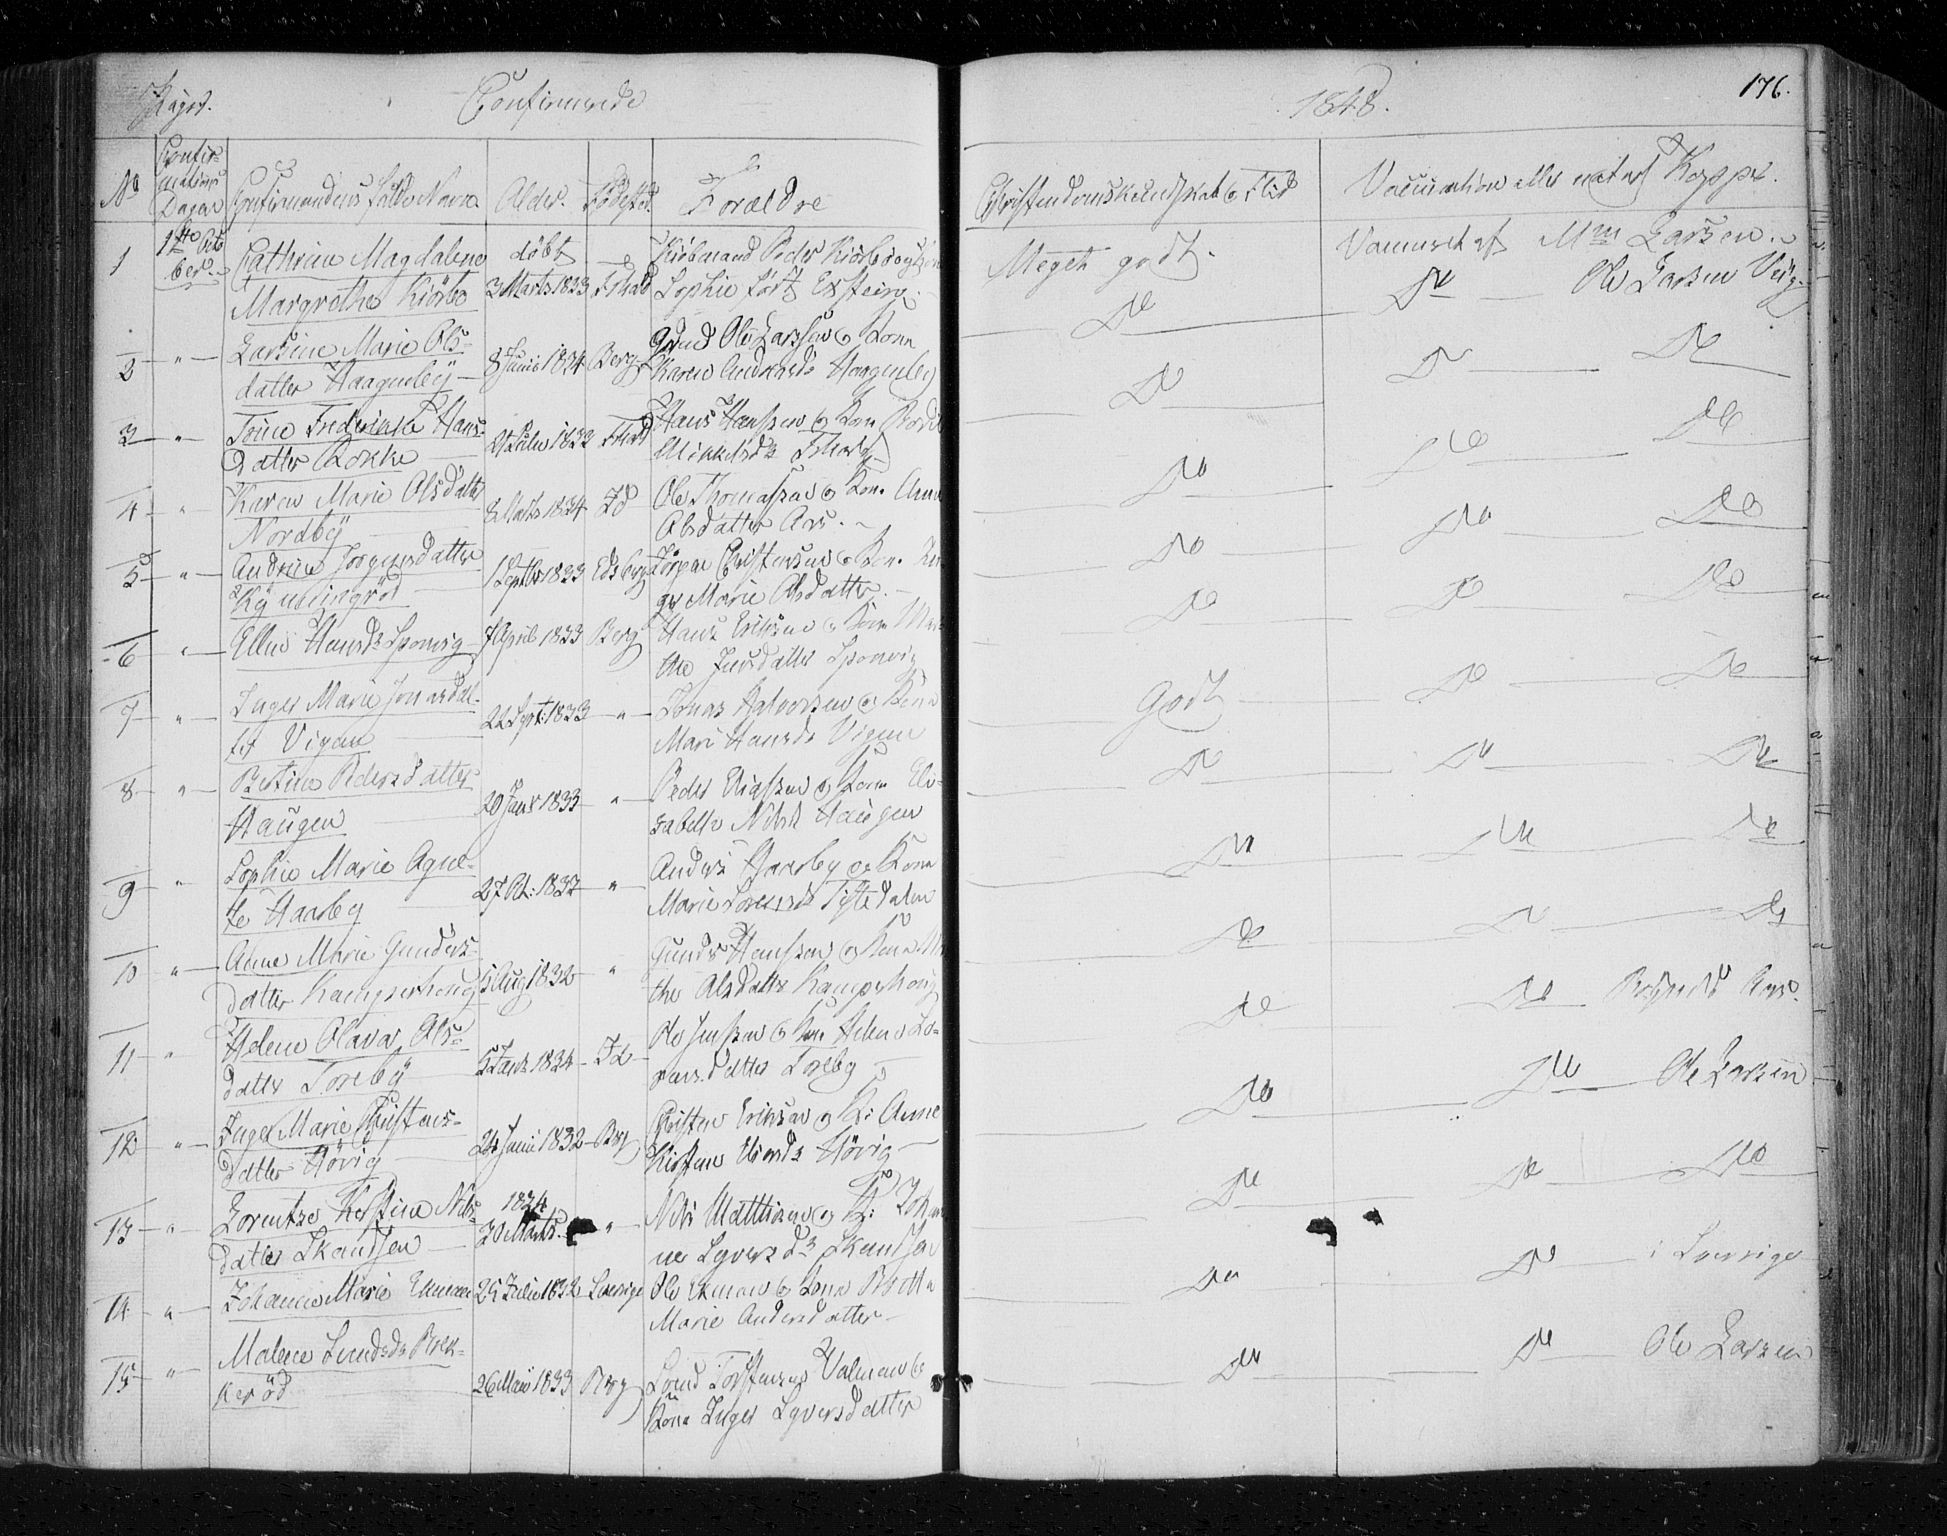 Confirmerede
1848.
176.
No
Confir-
mations
Dagen
Confirmandens fulde Navn
Alder.
Fødested.
Forældre
Christendomskundskab og Flid
Vaccination eller naturl Kopper.
1
1ste Octo
ber
Cathrine Magdalene
Margrethe Kiørbo
døbt
3 Marts 1833
Frhald
Kiøbmand Peder Kiørbo og
Sophie født Exstein
Meget godt.
Larsen
Do
Do
Ole Larsen
2
"
Larsine Marie Ols-
datter Haagenbÿ
8 Junii 1834
Berg
Ole Larssen og Kone
Karen Haagenby
Do
Do
Do
3
"
Trine Frederikke Hans
Datter Rokke
1833
Frhald
Hans Hanssen og Kone
Mikkelsdr
Do
Do
Do
4
"
Karen Marie Olsdatter
Nordbÿ
8 Marts 1834
Id
Ole Thomassen og Kone Anne
Olsdatter Aas.
Do
Do
Do
5
"
Andrine Jørgensdatter
1 Septbr 1833
Edsberg
Jørgen Christensen og Kone In-
ger Marie Olsdatter
Do
Do
Do
6
"
Ellen Hansdr Sponvig
7 April 1833
Berg
Hans Eriksen og Kone Mar-
the Jensdatter Sponvig
Godt
Do
Do
7
"
Inger Marie Jonasdat-
ter Vigen
22 Sept: 1833
"
Jonas Halvorsen og Kone
Mari Hansdr Vigen
Do
Do
Do
8
"
Bertine Pedersdatter
Haugen
20 Janr 1833
"
Peder Eliassen og Kone Eli-
sabeth Nilsd Haugen
Do
Do
Do
9
"
Sophie Marie Agne-
te Haasby
27 1832
"
Anders Haasby og Kone
Marie Lorensdr Tistedalen
Do
Do
Do
10
"
Anne Marie Gunders-
datter Kampenhoug
5 Aug 1832
"
Gunder Hanssen og Kone Mar
the Olsdatter Kampenhoug
Do
Do
Aas.
11
"
Helene Olava Ols-
datter Torebÿ
5 Janr 1834
Id
Ole Jenssen og Kone Helene Lo-
rensdatter Toreby
Do
Do
Ole Larsen
12
"
Inger Marie Christens-
datter Høvig
24 Junii 1832
Berg
Christen Eriksen og K: Anne
Kirstine Høvig
Do
Do
Do
13
"
Lorentze Kirstine Nils-
datter Skandsen
1834
30 Marts
"
Nils Matthisen og K: Johan
ne Syversdr Skandsen
Do
Do
i Sverige
14
"
Johanne Marie Ekman
25 Julii 1832
Sverige
Ole Ekman og Kone Britta
Marie Andersdatter
Do
Do
Ole Larsen
15
"
Malene Svendsdr Brek-
kerød
26 Mai 1833
Berg
Svend Torstensen Valman og
Kone Inger Syversdatter